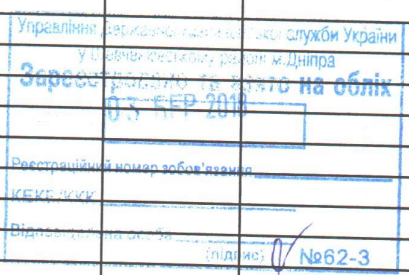 Управління Державної казначейської служби України
у Шевченківському районі м.Дніпра
Зареєстровано та взято на облік
03 БЕР 2018
Реєстраційний номер зобов'язання
КЕКВ/ККК
Відповідальна особа
(підпис) №62-3